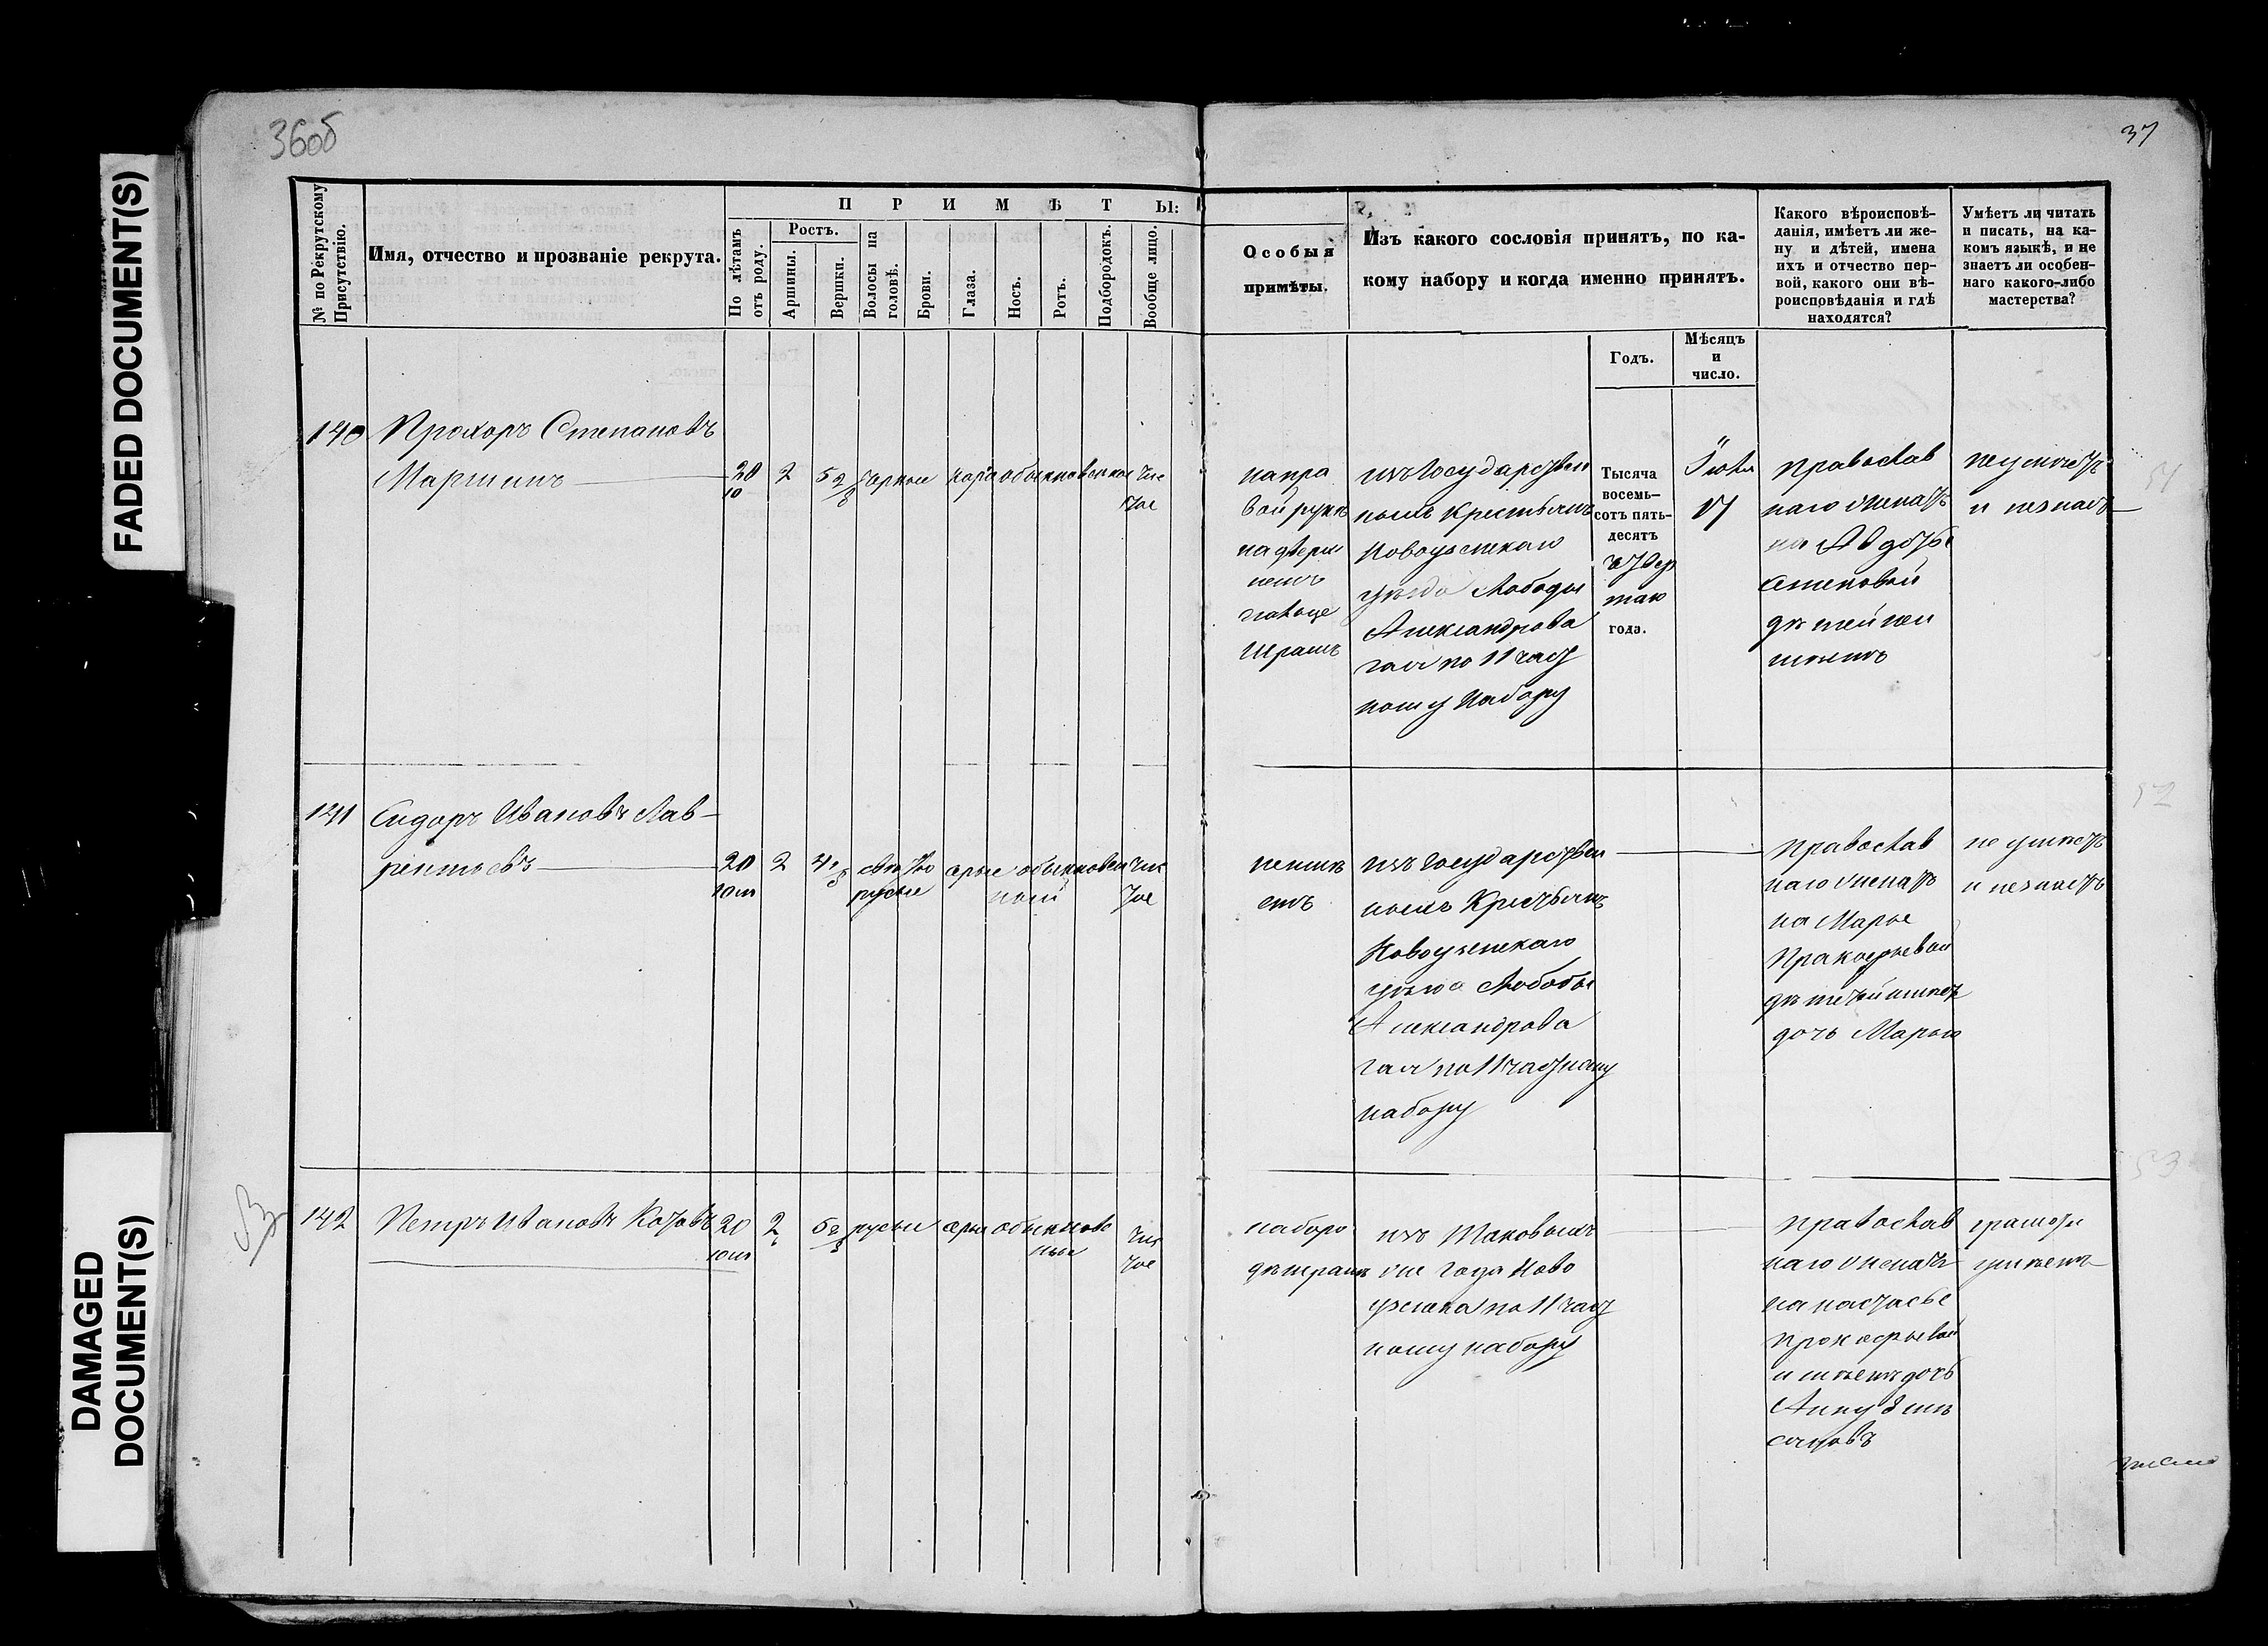 FADED DOCUMENT(S)
DAMAGED
DOCUMENT(S)
36об
37
№ по Рекрутскому
Присутствію.
Имя, отчество и прозваніе рекрута.
ПРИМѢТЫ:
По лѣтамъ
отъ роду.
Ростъ.
Аршины.
Вершки.
Волосы на
головѣ.
Брови.
Глаза.
Носъ.
Ротъ.
Подбородокъ.
Вообще лицо.
Особыя
примѣты.
Изъ какого сословія принятъ, по ка-
кому набору и когда именно принятъ.
Годъ.
Мѣсяцъ
и
число.
Какого вѣроисповѣ-
данія, имѣетъ ли же-
ну и дѣтей, имена
ихъ и отчество пер-
вой, какого они вѣ-
роисповѣданія и гдѣ
находятся?
Умѣетъ ли читать
и писать, на ка-
комъ языкѣ, и не
знаетъ ли особен-
наго какого-либо
мастерства?
140
Прохоръ Степановъ
20
10
2
5 2/8
черные
каріе
обыкновенные
чис
тое
на пра
вой рукѣ
шрамъ
изъ государствен
ныхъ крестьянъ
Новоузенскаго
уѣзда слободы
Александрова
гая по 11 част
ному набору
Тысяча
восемь-
сотъ пять-
десятъ
четвер
таго
года.
Іюля
17
православ
наго женатъ
на Авдотье
дѣтей неи
мѣетъ
не умѣетъ
и незнаетъ
51
141
Сидоръ Ивановъ Лав-
рентьевъ
20
10 м
2
4 1/8
свѣтло
русые
серые
обыкновен
ной
чис
тое
неимѣ
етъ
изъ государствен
ныхъ Крестьянъ
Новоузенскаго
уѣзда слободы
Александрова
гая по 11 частному
набору
православ
наго женатъ
на Марье
Пракофьевой
дѣтей имѣетъ
дочь Марью
не умѣетъ
и незнаетъ
52
142
Петръ Ивановъ Котовъ
20
10 м
2
5 2/8
русые
серые
обыкновен
ные
чис
тое
на боро
дѣ шрамъ
изъ таковыхъ
же года Ново
узенска по 11 част
ному набору
православ
наго женатъ
на настасье
Прокофьевой
имѣетъ дочь
Анну 8 мѣ
сяцовъ
грамоте
умѣетъ
53